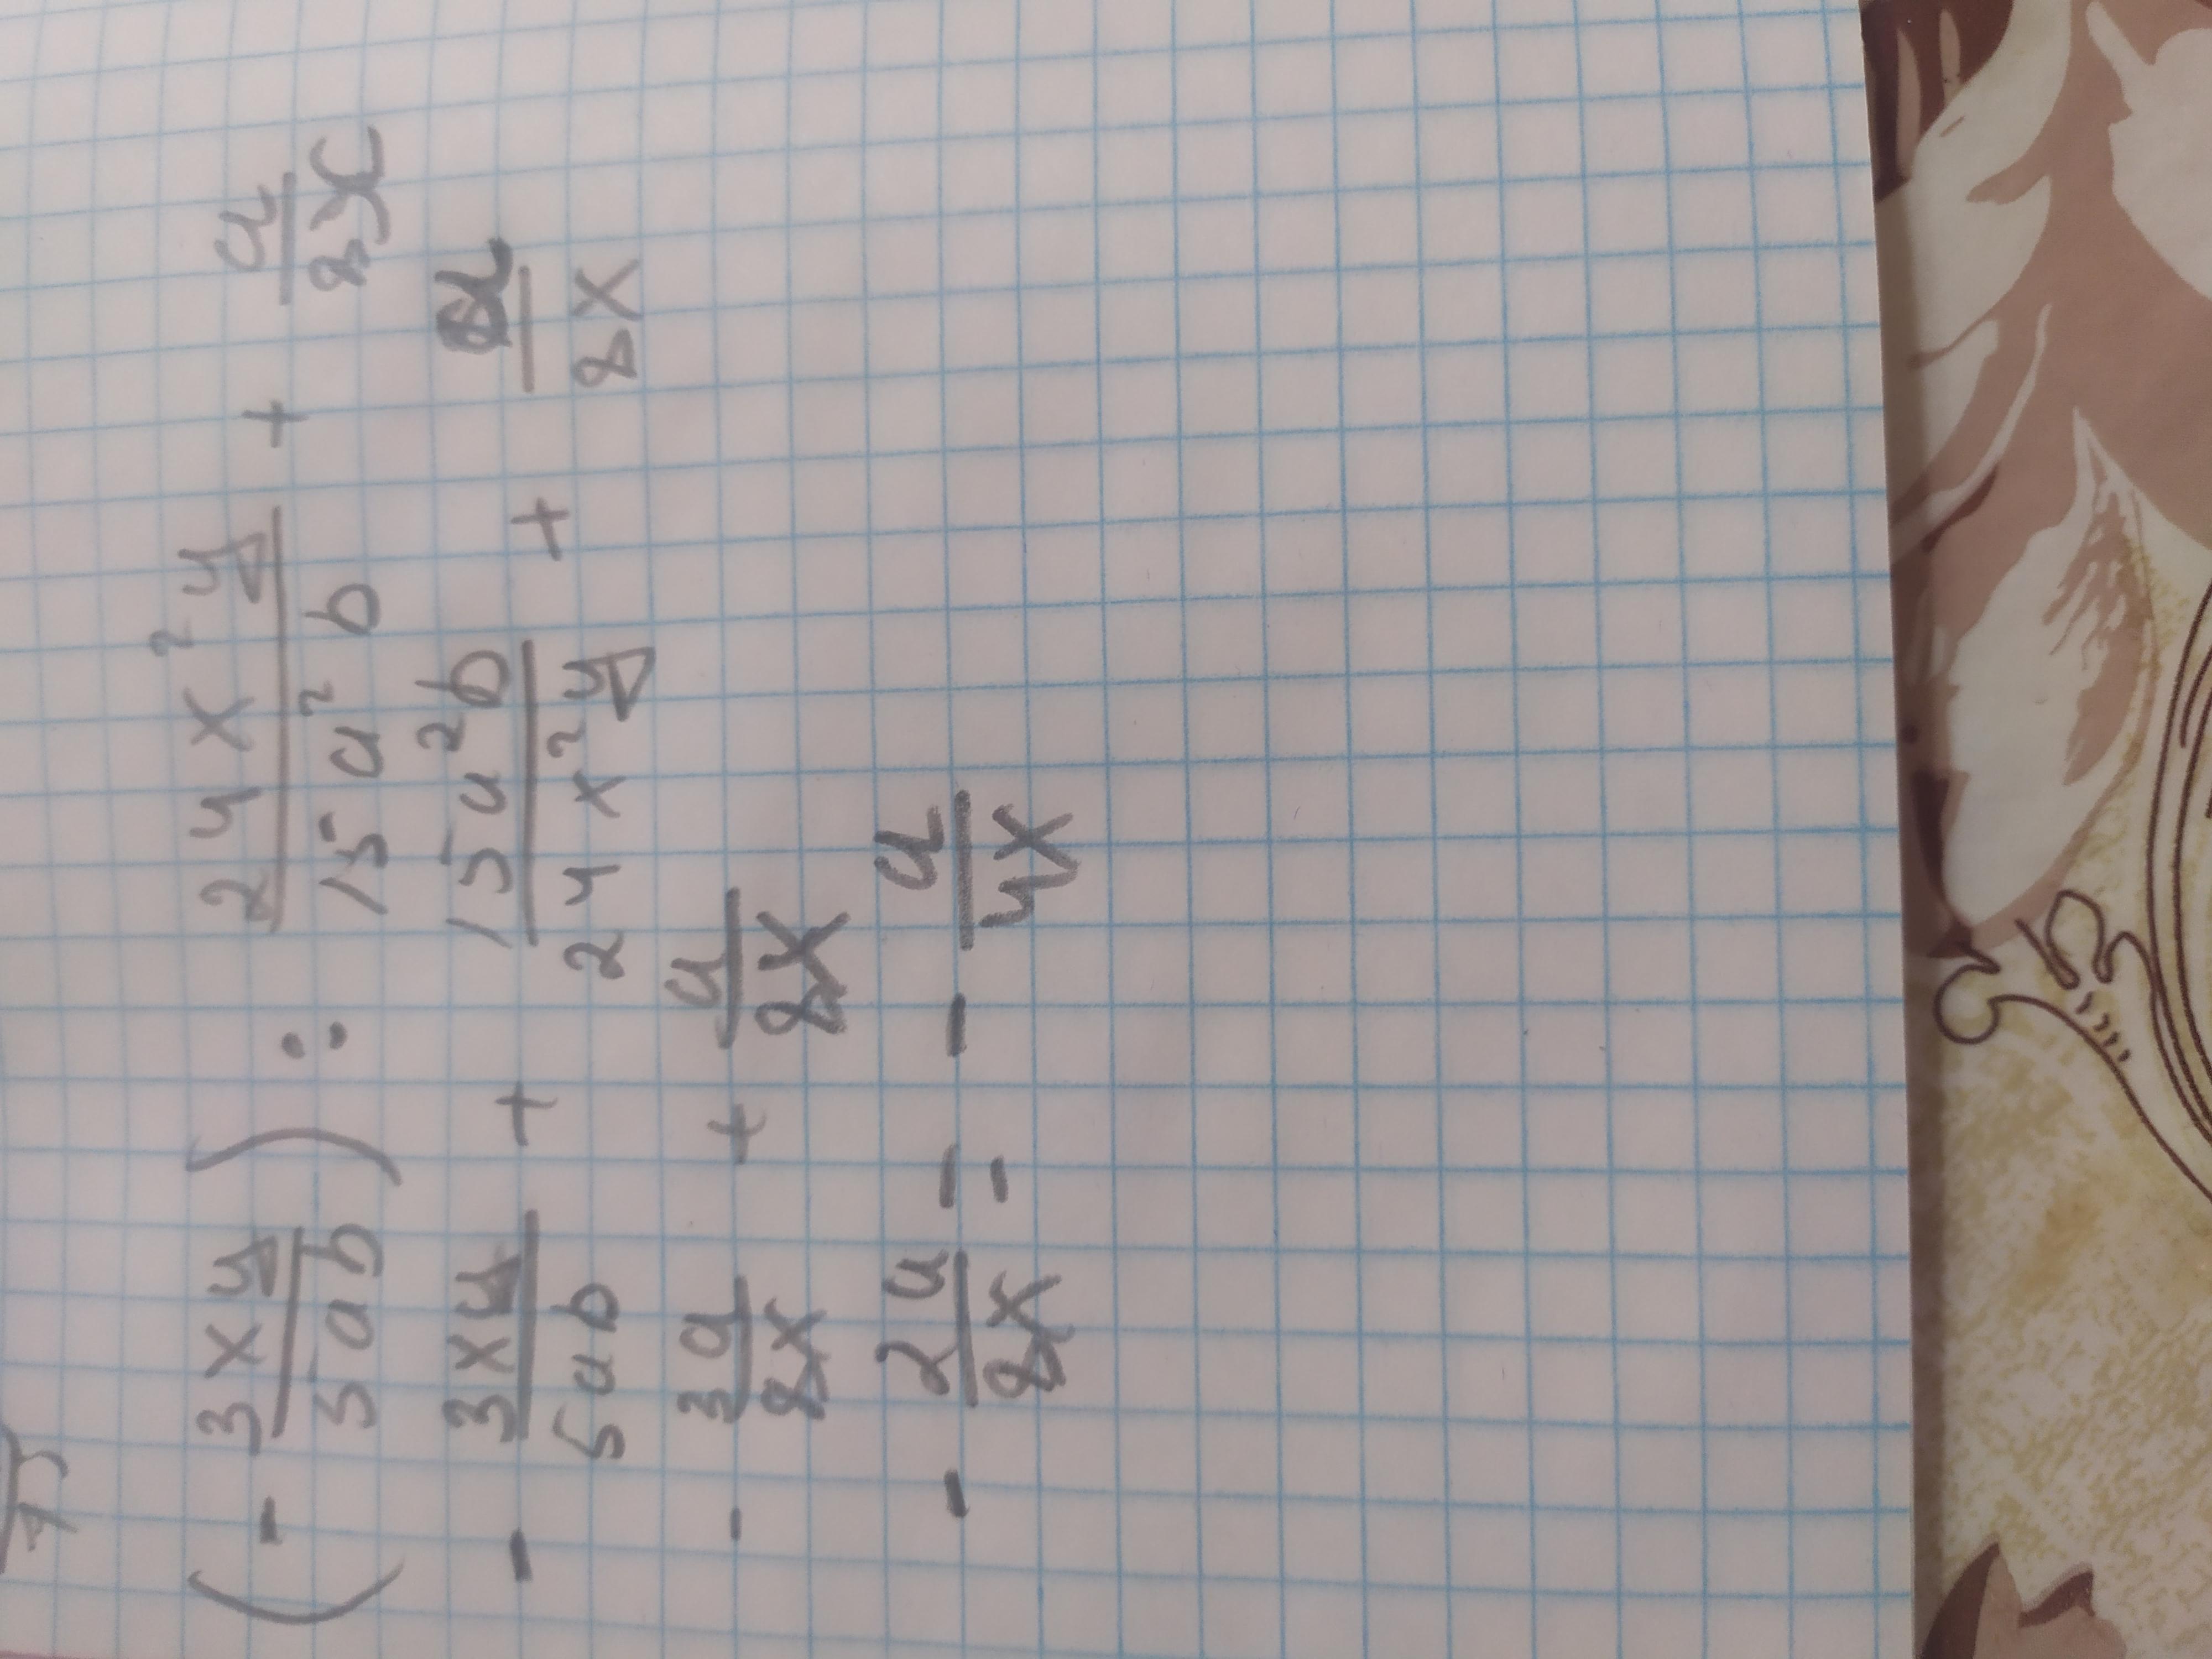 (- 3xy/5ab) : 24x²y/15a²b + a/8x
- 3xy/5ab + 15a²b/24x²y + a/8x
- 3a/8x + a/8x
- 2a/8x = - a/4x